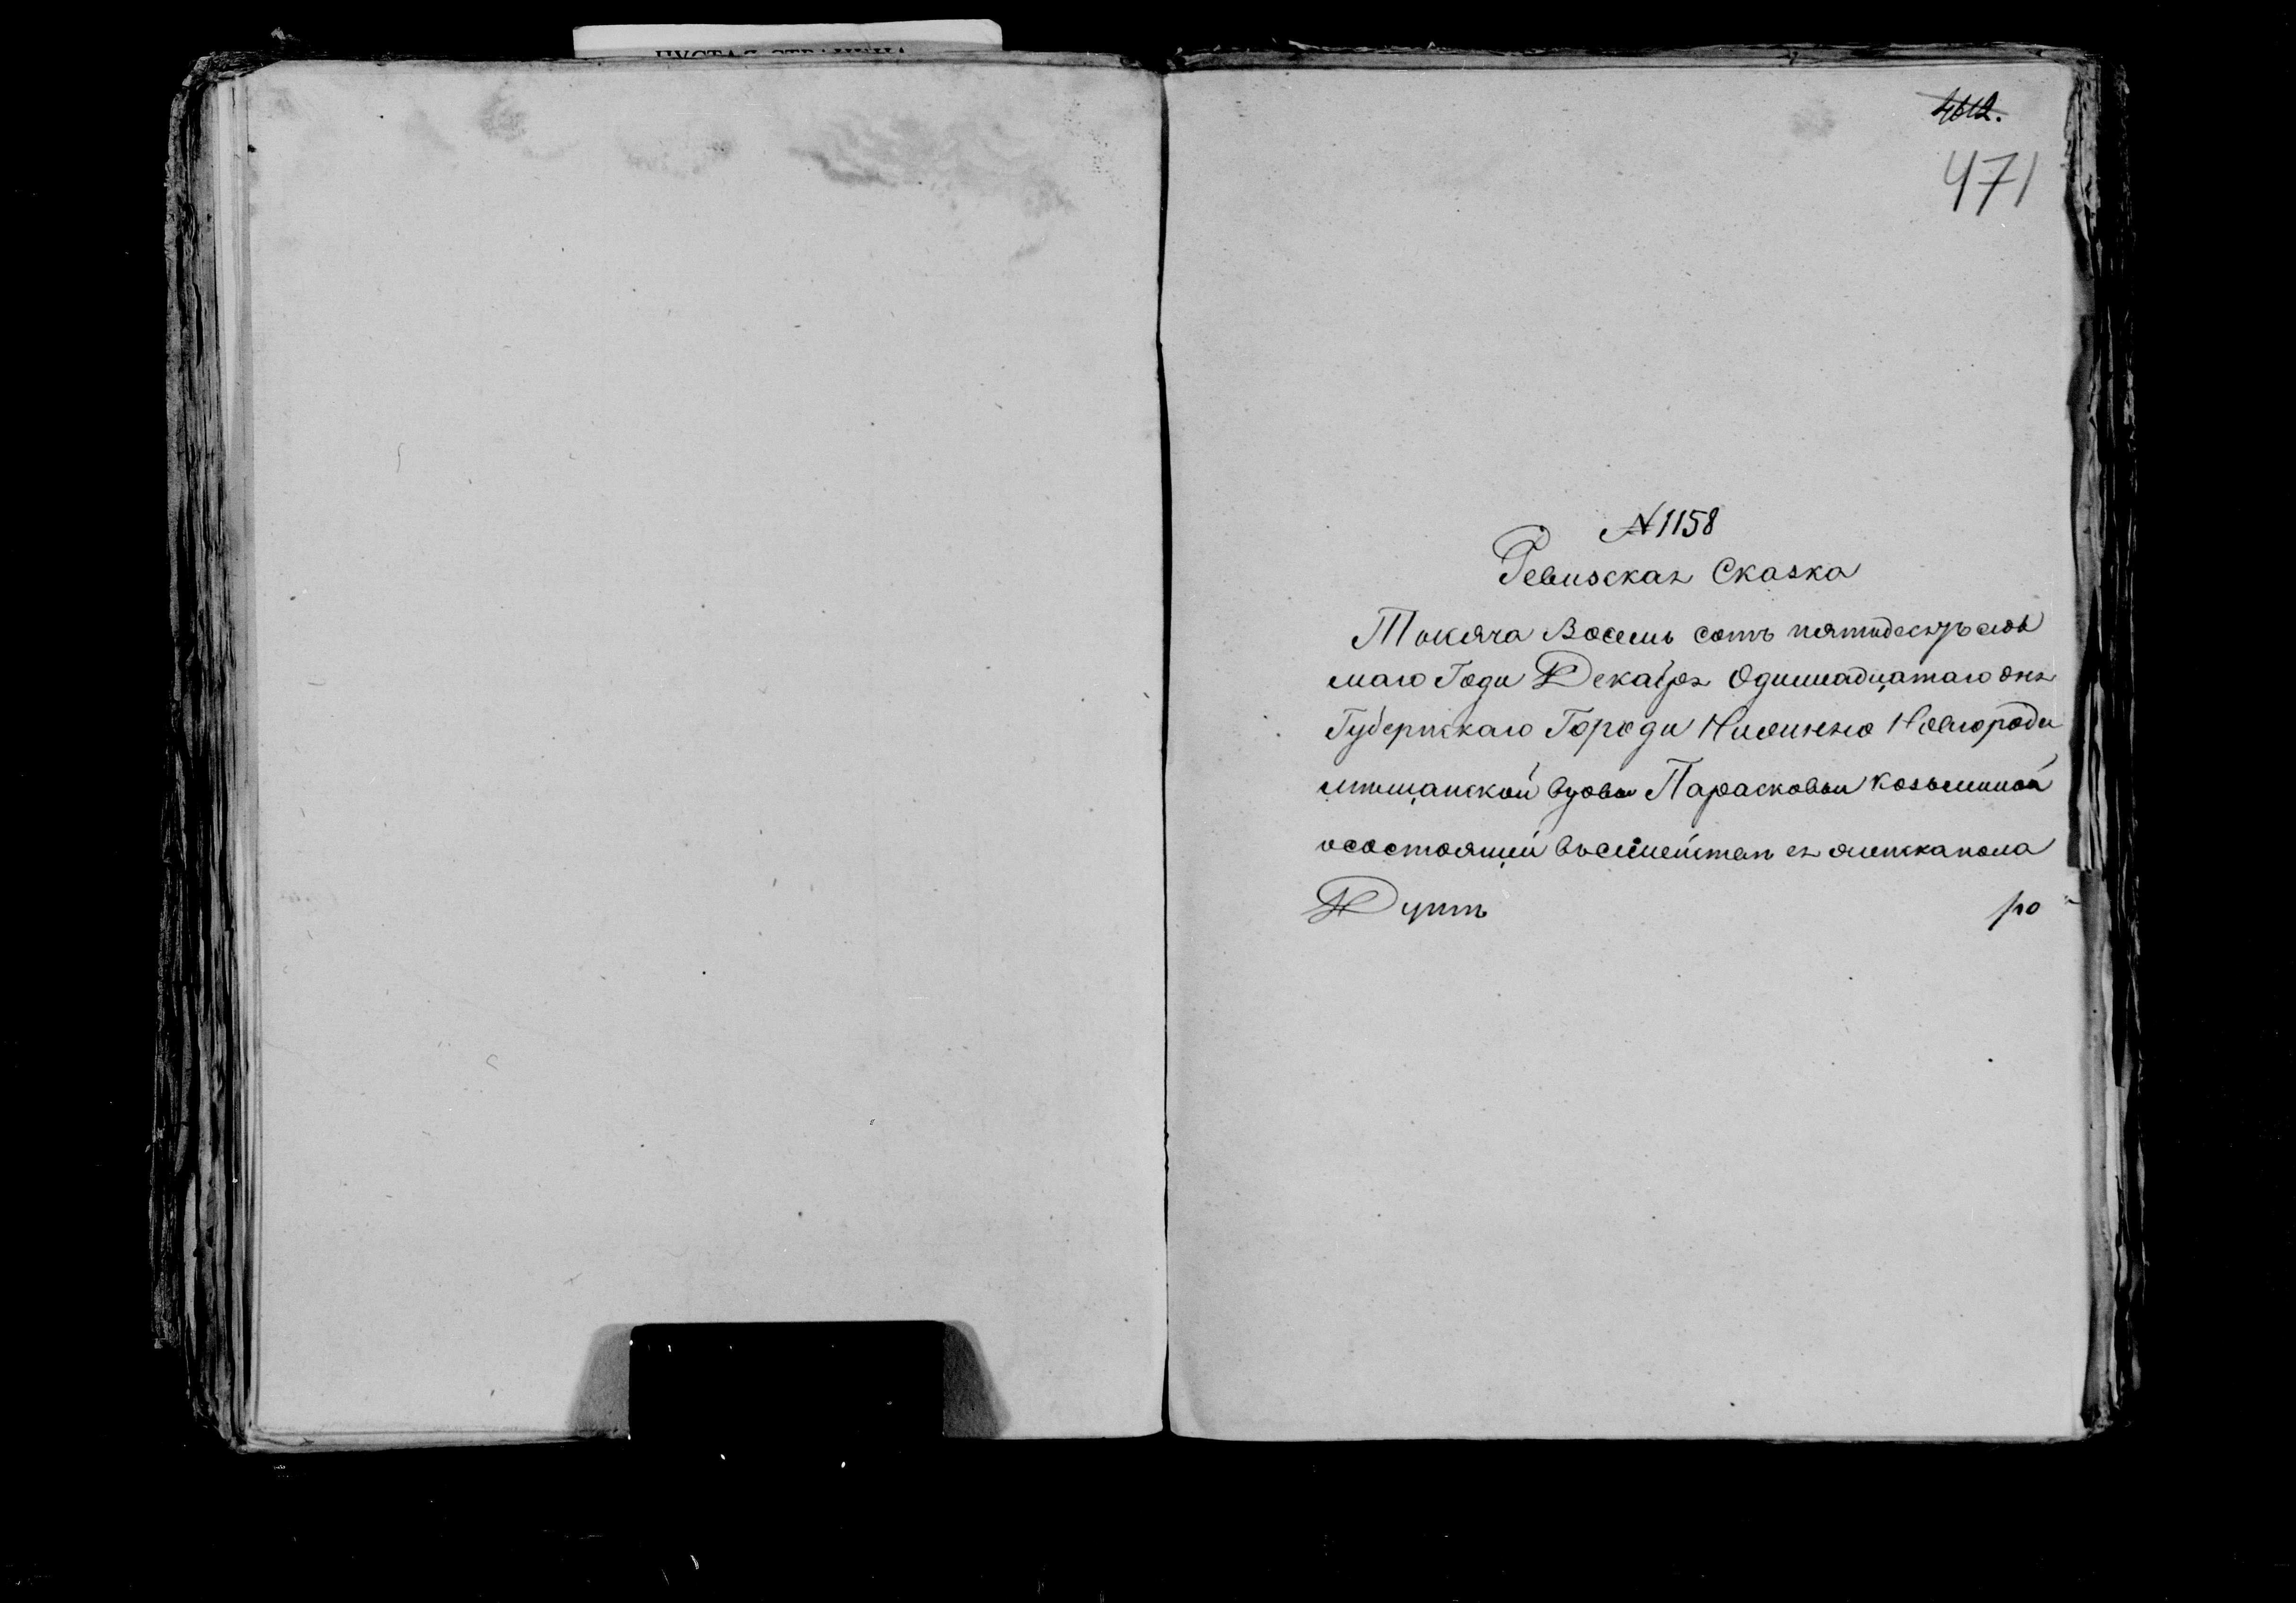 4612.
471
№ 1158
Ревизская Сказка
Тысяча Восемь сотъ пятидесятъ седь
маго Года Декабря Одиннадцатаго дня
Губернскаго Города Нижняго Новгорода
мещанской вдовы Парасковьи Козьминой
осостоящей всемействе ея женскапола
Душъ